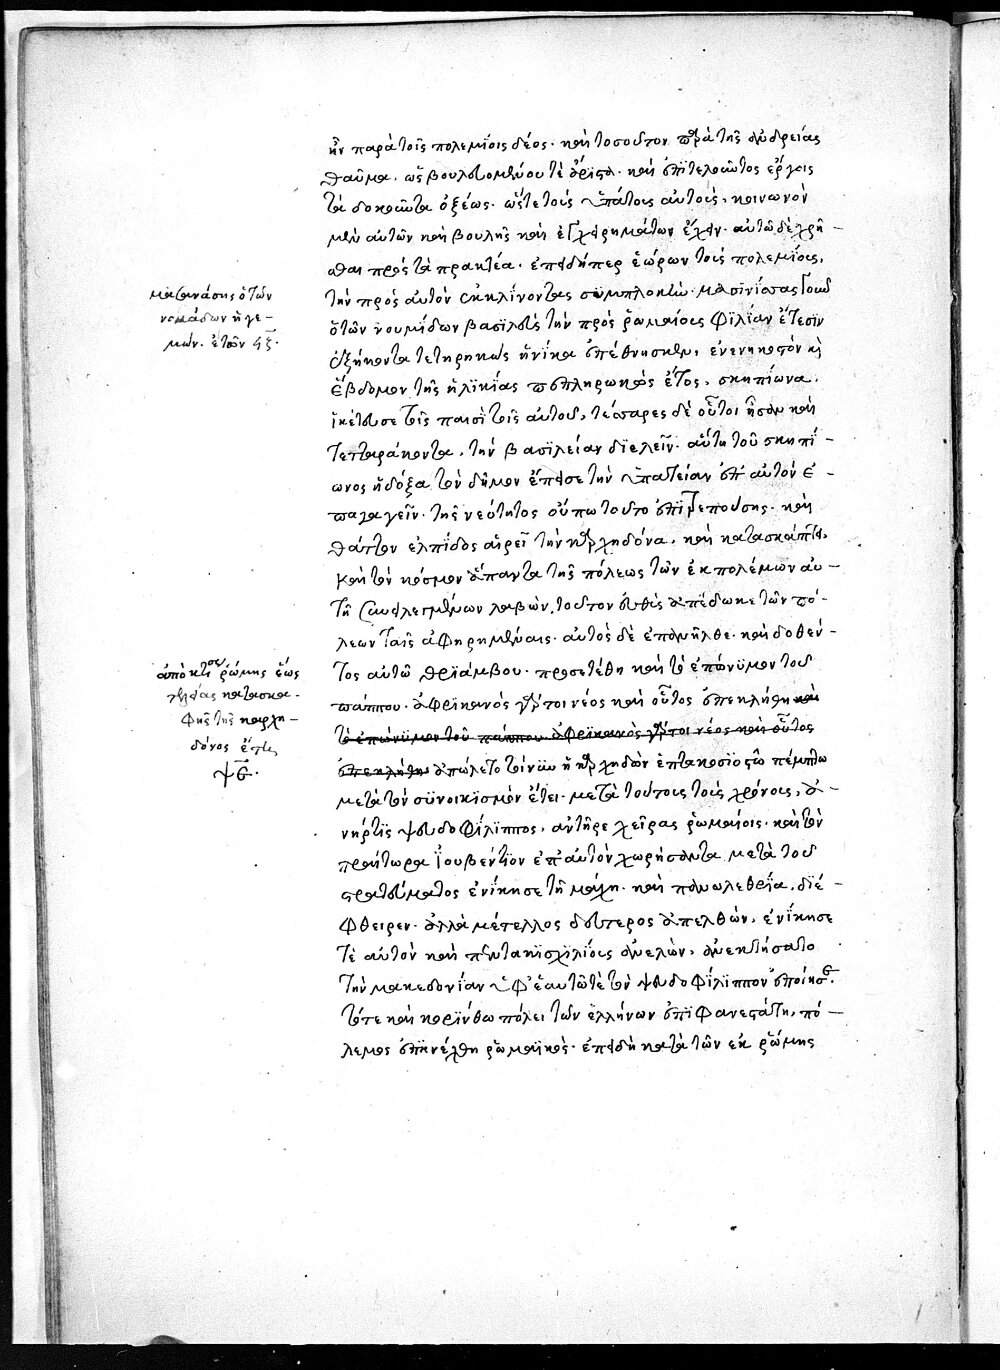 ἦν παρὰ τοῖς πολεμίοις δέος· καὶ τοσοῦτον παρὰ τῆς ἀνδρείας
θαῦμα, ὡς βουλευομένου τὲ ἄριστα· καὶ ἐπιτελοῦντος ἔργοις
τὰ δοκοῦντα ὀξέως· ὥστε τοὺς ὑπάτους αὐτοὺς, κοινωνὸν
μὲν αὐτῶν καὶ βουλῆς καὶ ἐγχειρημάτων ἔχειν· αὐτῷ δὲ χρῆ-
σθαι πρὸς τὰ πρακτέα· ἐπειδήπερ ἑώρων τοὺς πολεμίους,
τὴν πρὸς αὐτὸν ἐκκλίνοντας συμπλοκὴν· μασινίσσας γοῦν
ὁ τῶν νουμίδων βασιλεὺς τὴν πρὸς ῥωμαίους φιλίαν ἔτεσιν
ἑξήκοντα τετηρηκὼς ἡνίκα ἀπέθνησκεν, ἐνενηκοστὸν καὶ
ἕβδομον τῆς ἡλικίας πεπληρωκὼς ἔτος, σκηπίωνα,
ἱκέτευσε τοῖς παισὶ τοῖς αὐτοῦ, τέσσαρες δὲ οὗτοι ἦσαν καὶ
τετταράκοντα, τὴν βασιλείαν διελεῖν· αὕτη τοῦ σκηπί-
ωνος ἡ δόξα τὸν δῆμον ἔπεισε τὴν ὑπατείαν ἐπ' αὐτὸν ἐ-
παγαγεῖν· τῆς νεότητος οὔπω τοῦτο ἐπιτρεπούσης· καὶ
θᾶττον ἐλπίδος αἱρεῖ τὴν καρχηδόνα, καὶ κατασκάπτει,
καὶ τὸν κόσμον ἅπαντα τῆς πόλεως τῶν ἐκ πολέμων αὐ-
τῇ συνειλεγμένων λαβὼν, τοῦτον εὐθὺς ἀπέδωκε τῶν πό-
λεων ταῖς ἀφῃρημέναις· αὐτὸς δὲ ἐπανῆλθε· καὶ δοθέν-
τος αὐτῷ θριάμβου· προσετέθη καὶ τὸ ἐπώνυμον τοῦ
πάππου· ἀφρικανὸς γάρ τοι νέος καὶ οὗτος ἐπεκλήθη καὶ
τὸ ἐπώνυμον τοῦ πάππου ἀφρικανὸς γάρ τοι νέος καὶ οὗτος
ἐπεκλήθη· ἀπώλετο τοίνυν ἡ καρχηδὼν ἑπτακοσιοστῷ πέμπτῳ
μετὰ τὸν συνοικισμὸν ἔτει· μετὰ τούτους τοὺς χρόνους, ἀ-
νήρ τις ψευδοφίλιππος, ἀντῆρε χεῖρας ῥωμαίοις· καὶ τὸν
πραίτωρα ἰουβέντιον ἐπ' αὐτὸν χωρήσαντα μετὰ τοῦ
στρατεύματος ἐνίκησε τῇ μάχῃ· καὶ πανωλεθρίᾳ, διέ-
φθειρεν· ἀλλὰ μέτελλος δεύτερος ἀπελθὼν, ἐνίκησε
τὲ αὐτὸν καὶ πεντακισχιλίους ἀνελὼν, ἀνεκτήσατο
τὴν μακεδονίαν ὑφ' ἑαυτῷ τὲ τὸν ψευδοφίλιππον ἐποίησε,
τότε καὶ κορίνθῳ πόλει τῶν ἑλλήνων ἐπιφανεστάτῃ, πό-
λεμος ἐπηνέχθη ῥωμαϊκὸς· ἐπειδὴ κατὰ τῶν ἐκ ῥώμης
μασανάσης ὁ τῶν
νομάδων ἡγε-
μών. ἐτῶν ϟζ.
ἀπὸ κτίσεως ῥώμης ἕως
κατασκα-
φῆς τῆς καρχη-
δόνος ἔτη
ψε.